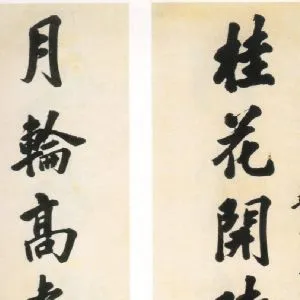 桂花開
月輪高